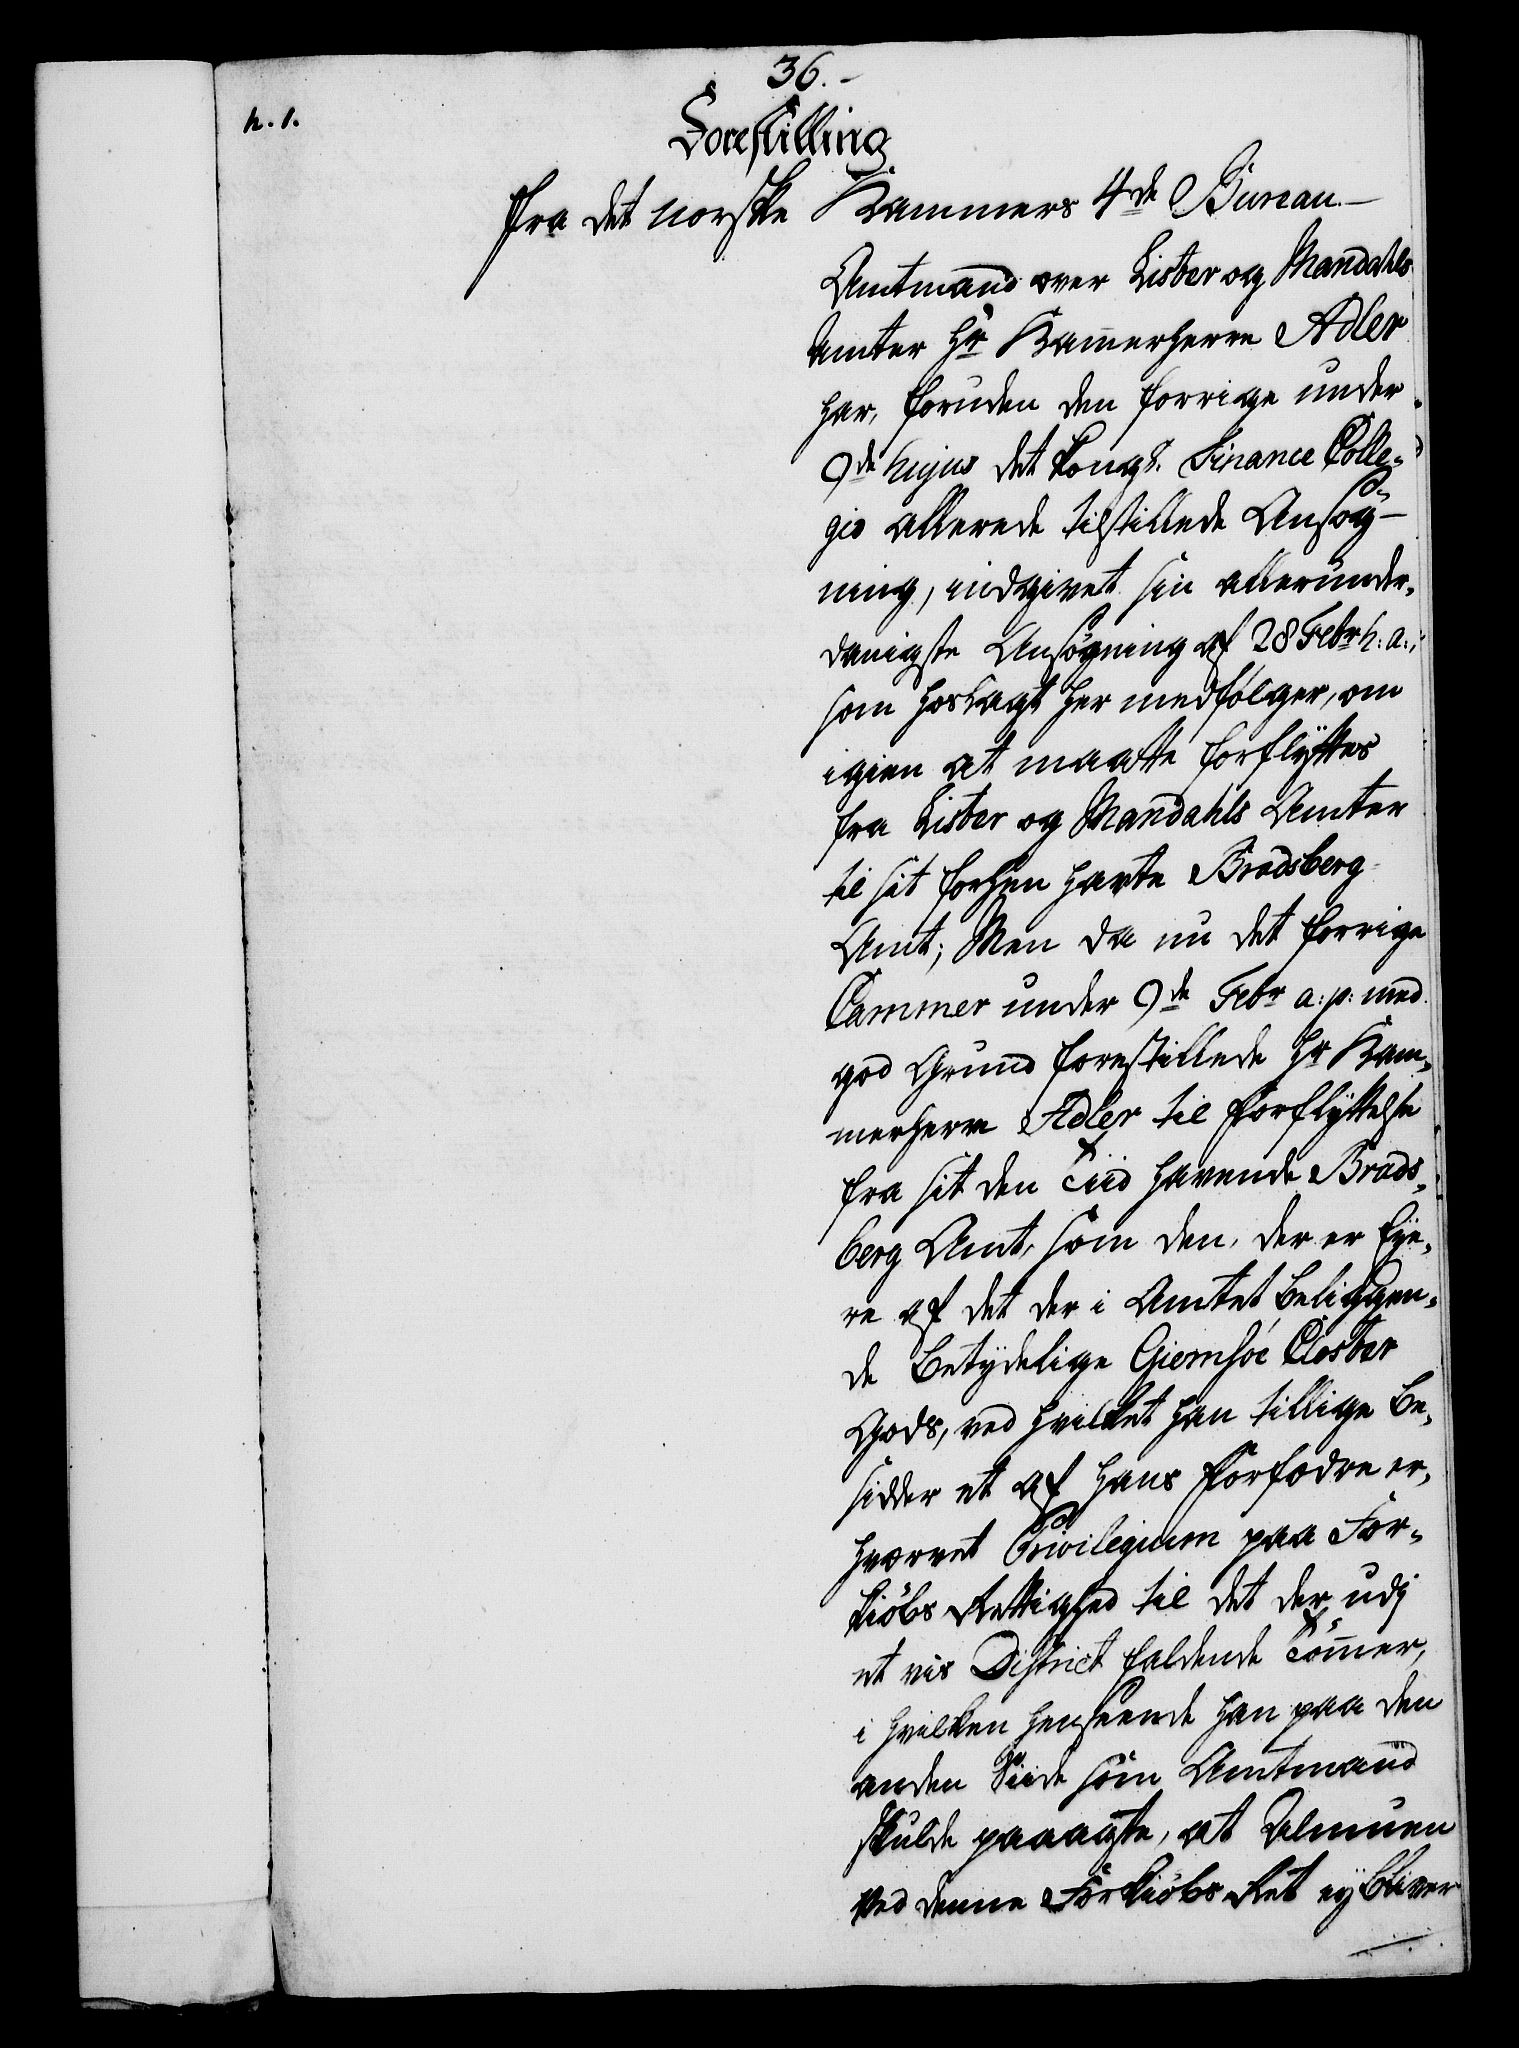 36.-
n. 1.
Forestilling
fra det norske Kammers 4de Bureau.-
Amtmand over Lister og Mandahls
Amter Hr Kamerherre Adler
har, foruden den forrige under
9de hujus det kongl. Finance Colle-
gio allerede tilstillede Ansøg-
ning, indgivet sin allerunder-
danigste Ansøgning af 28 Febr h: a:,
som hoslagt her medfølger, om
igien at maatte forflyttes
fra Lister og Mandahls Amter
til sit forhen havte Bradsberg
Amt; Men da nu det forrige
Cammer under 9de Febr a: p: med
god Grund forestillede Hr Kam-
merherre Adler til Forflyttelse
fra sit den Tiid havende Brads-
berg Amt, som den, der er Eye-
re af det der i Amtet beliggen-
de betydelige Giemsøe Closter
Gods, ved hvilket han tillige be-
sidder et af hans Forfædre er-
hvervet Privilegium paa For-
kiøbs Rettighed til det der udj
et vis District faldende Tømer,
i hvilken henseende han paa den
anden Siide som Amtmand
skulde paaagte, at Almuen
ved denne Forkiøbs Ret ey bliver